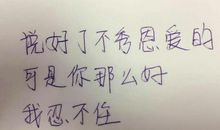 说好了不秀恩爱的
可是你那么好
我忍不住